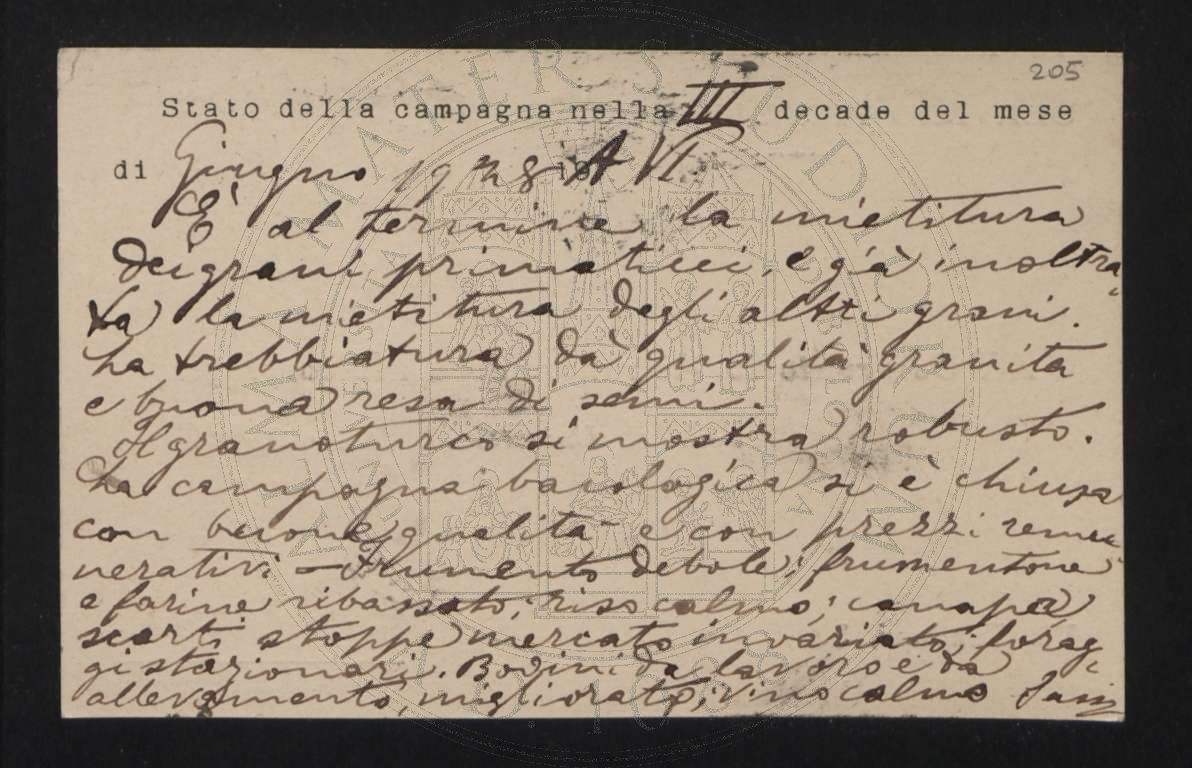 205
Stato della campagna nella III decade del mese
di Giugno 1928 A VI
E' al termine la mietitura
dei grani primaticci, e già inoltra-
ta la mietitura degli altri grani.
La trebbiatura dà qualità granita
e buona resa di semi.
Il granoturco si mostra robusto.
La campagna baiologica si è chiusa
con buone qualità e con prezzi remu-
nerativi - Frumento debole; frumentone
e farine ribassato; riso calmo; canapa
scarti stoppe mercato invariato; forag-
gi stazionari. Bovini da lavoro e da
allevamento, migliorato; vino calmo